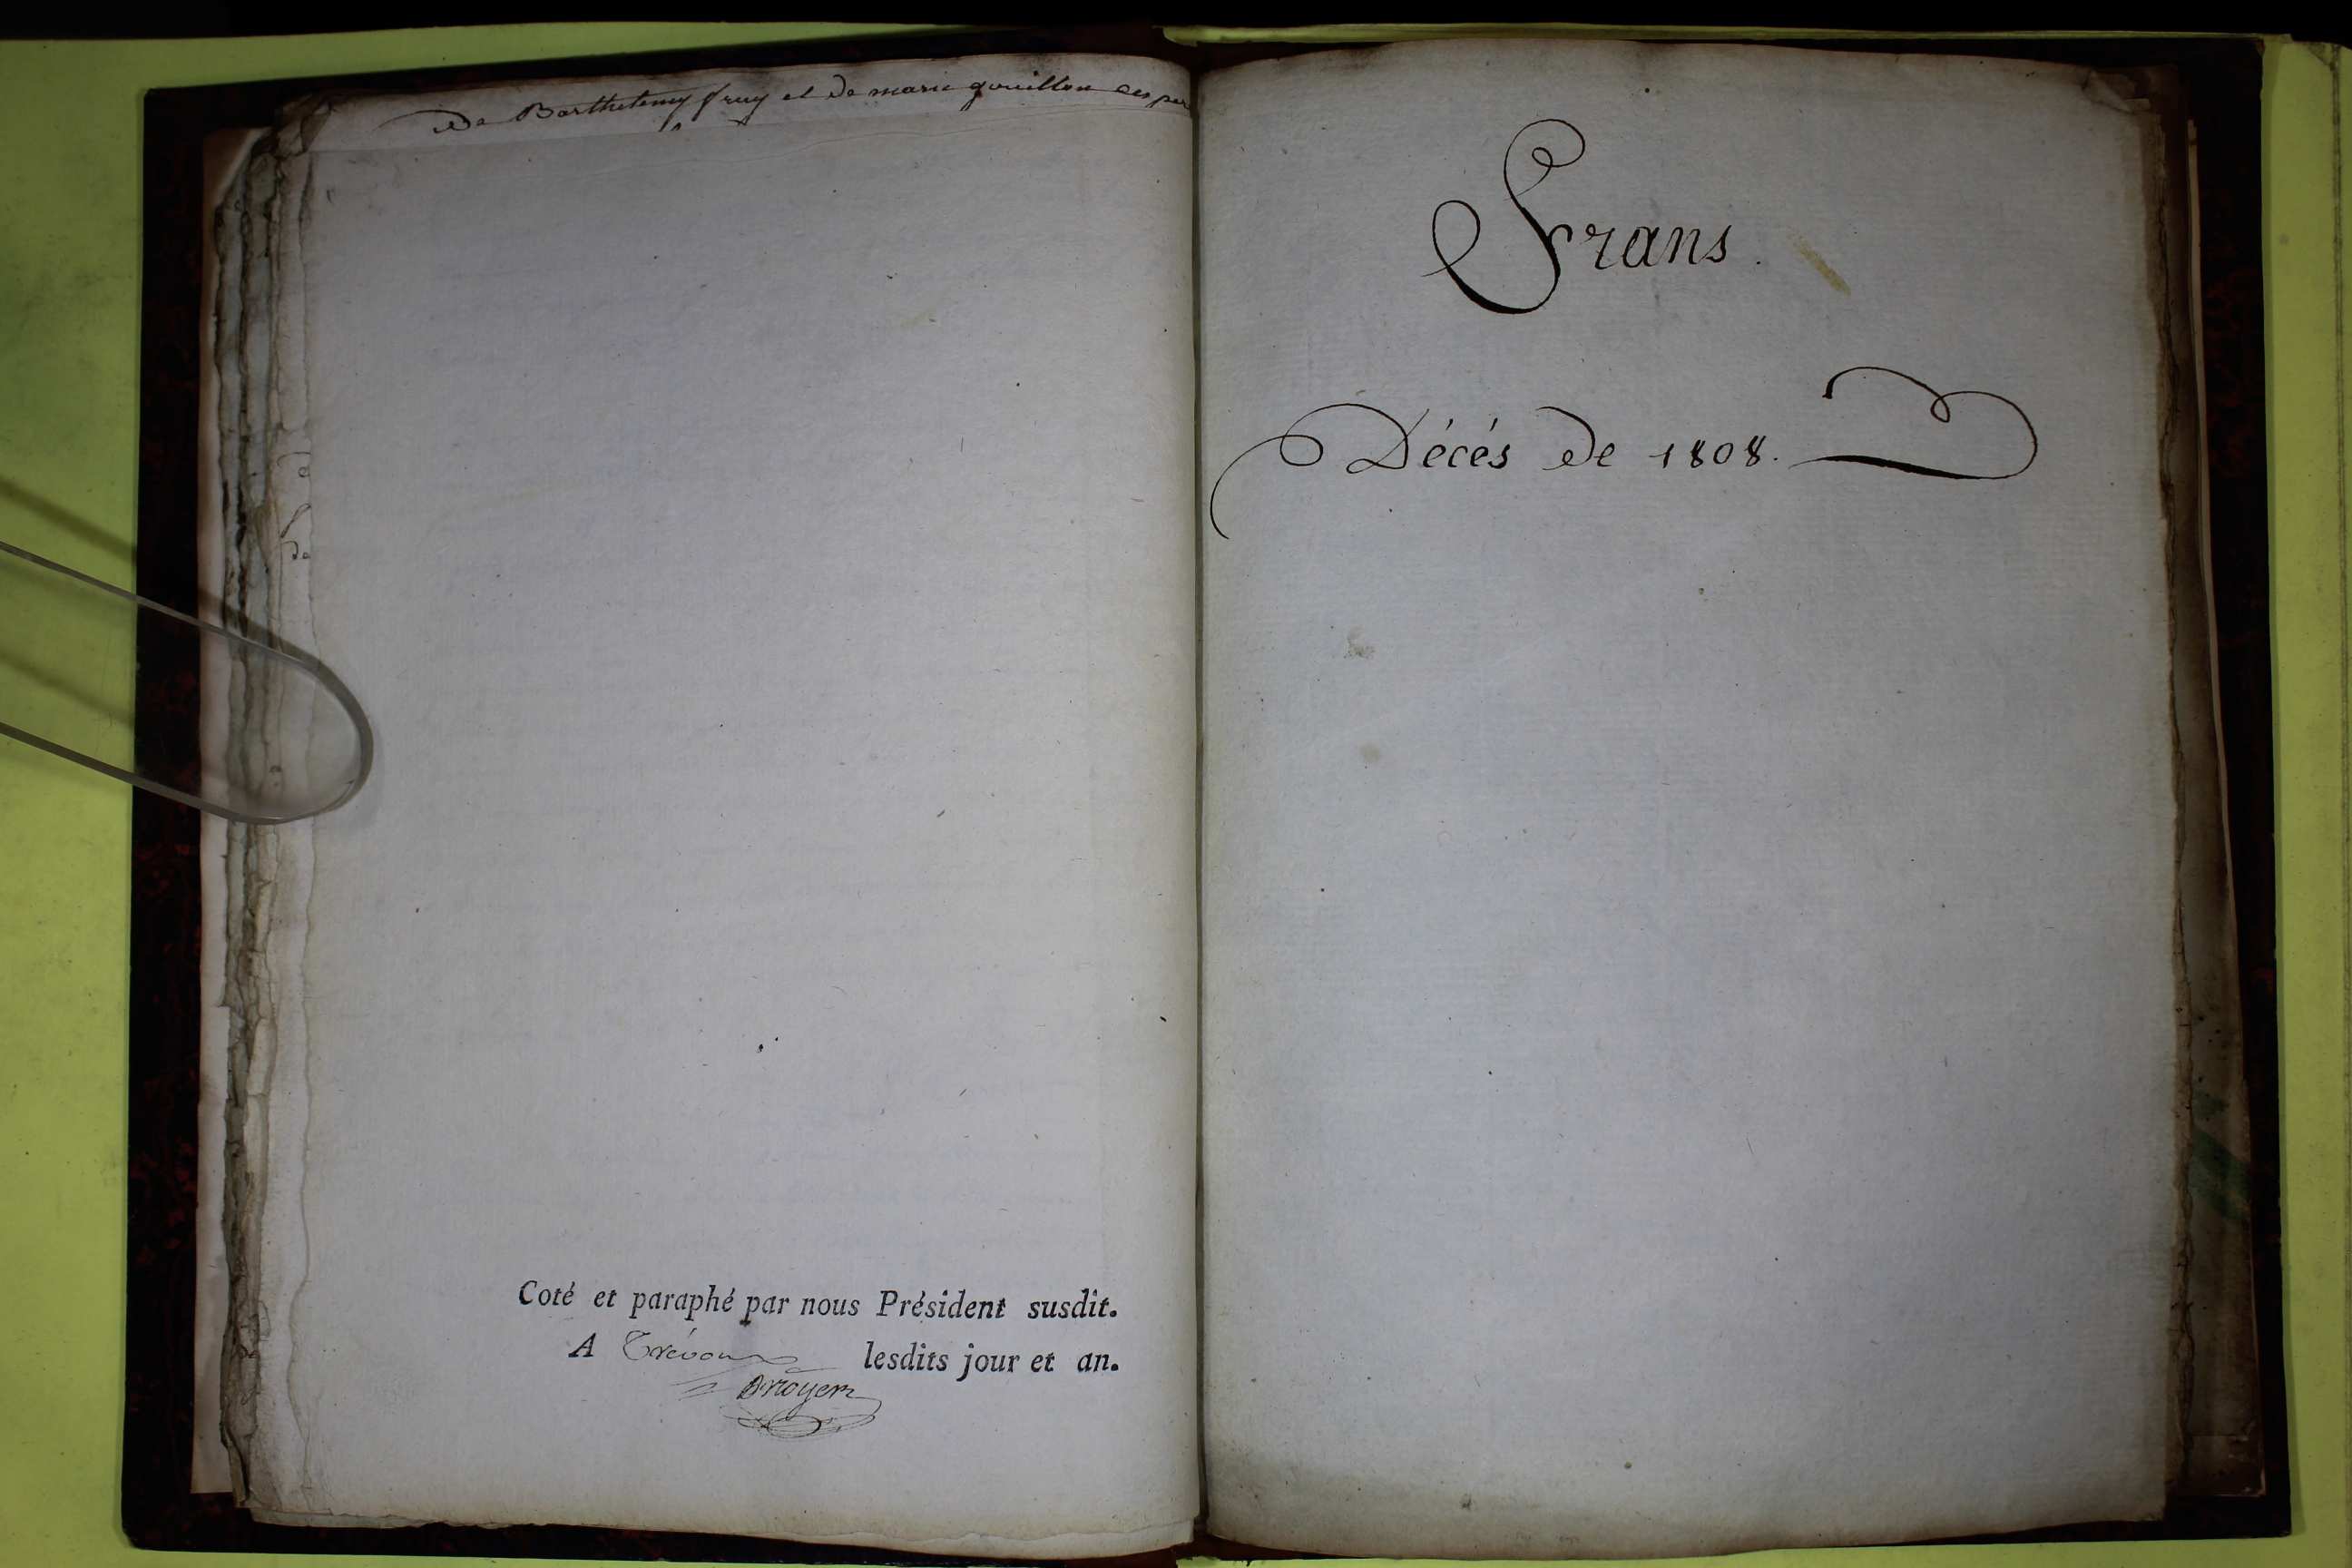 De Barthelemy fruy et De marie gouillon ses per
Coté et paraphé par nous Président susdit.
A Trévoux lesdits jour et an.
Frans.
Décés De 1808.